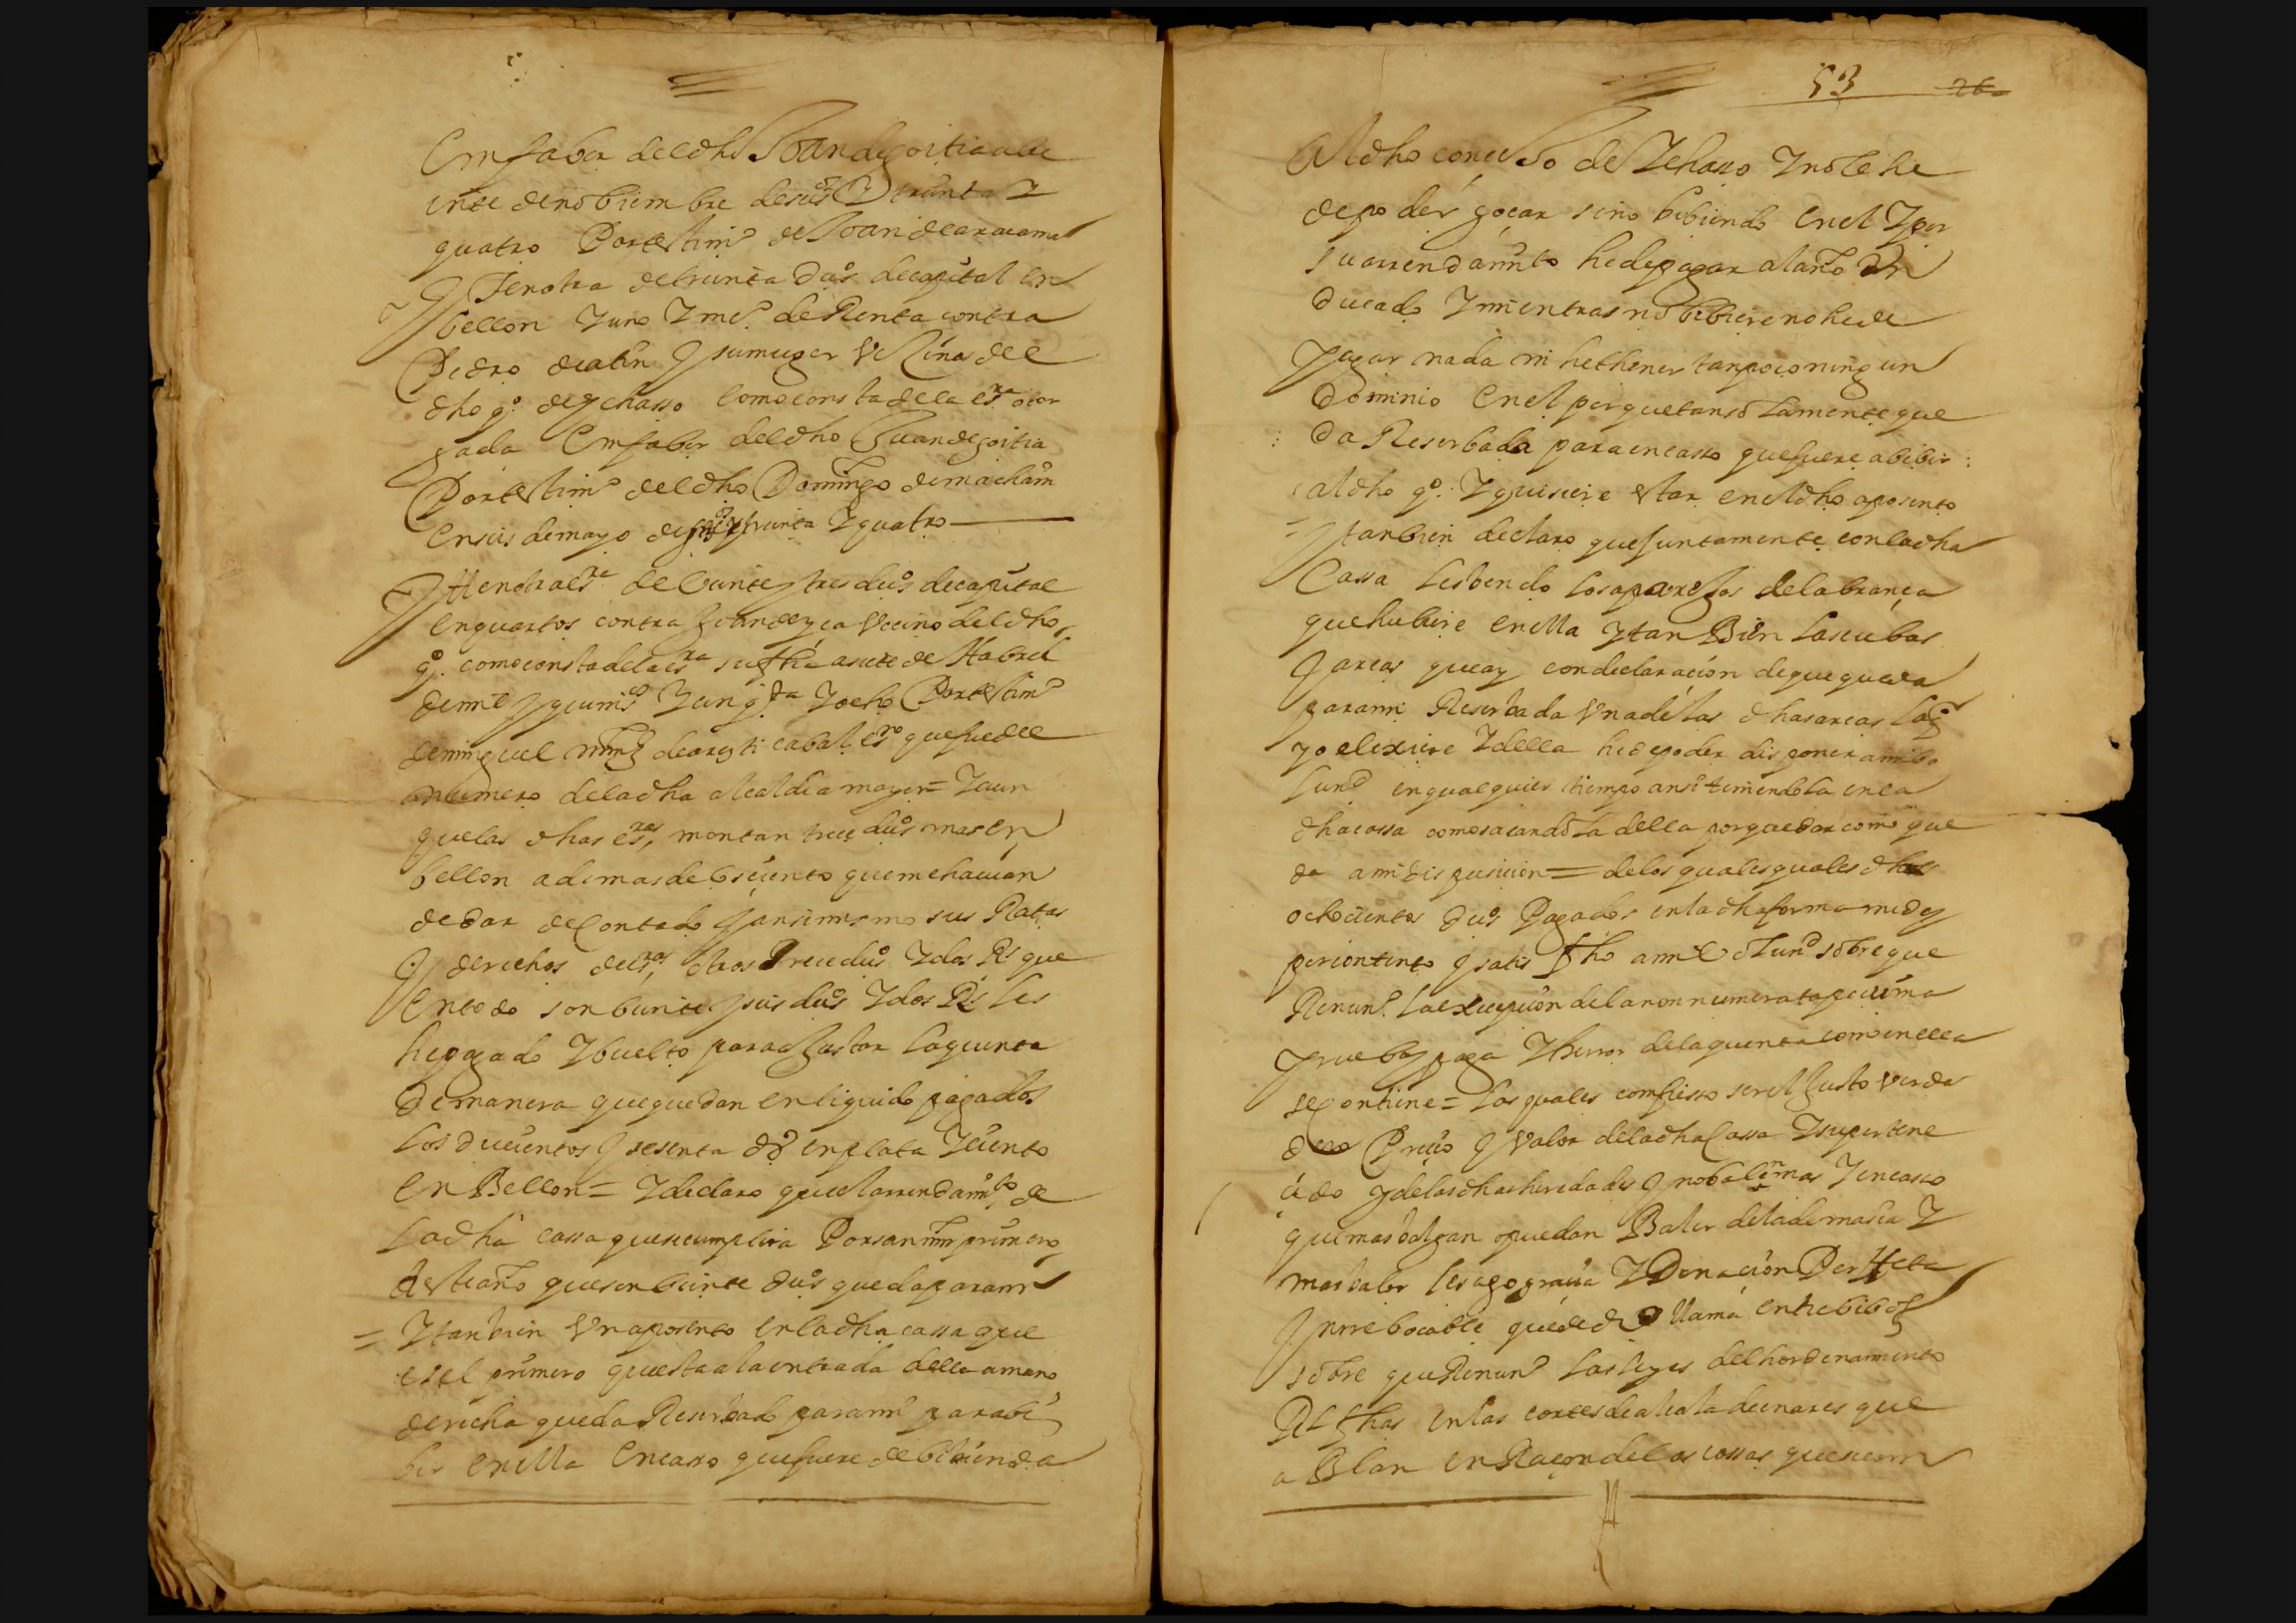 En fabor del dho Joan de goitia a be
inte de nobiembre de seisos y treinta y
quatro Por testimo de Joan de aracama
Y Ten otra de treinta dus de capital en
bellon y uno y mo de Renta contra
Pedro de y su muger Vezinos del
dho go de ychasso como consta de la esra otor
gada En fabor del dho Juan de goitia
Por testimo del dho Domingo de machain
en seis de mayo de treinta y quatro
Y tten otra esra de beinte y tres dus de capital
en quartos contra Joan de Vecino del dho
go como consta de la esra su fha a siete de Abril
de mil y quinios y ochо Por testimo
de miguel de aresti cabal esno que fue del
numero de la dha alcaldia mayor = y aun
que las dhas esras, montan trece dus mas en
bellon ademas de los ciento que me hauian
de dar de Contado y ansi mesmo sus Ratas
y derechos de esras, otros trece dus y dos Rs que
en todo son beinte y seis dus y dos Rs les
he pagado y buelto para ajustar la quenta
de manera que quedan en liquido pagados
los ducientos y sesenta ds en plata y ciento
en Bellon = y declaro que el arrendamto de
la dha cassa que se cumplira Por san min primero
deste año que son beinte dus queda para mi
= Y tanbien Vn aposento en la dha cassa que
es el primero que esta a la entrada della a mano
derecha queda Reserbado para mi para bi
bir en ella En casso que fuere de bibienda
53 26
Al dho concejo de ychasso y no le he
de poder goçar sino bibiendo en el y por
su arrendamiento he de pagar al año Vn
ducado y mientras no bibiere no he de
pagar nada ni he thener tanpoco ningun
Dominio en el porque tan solamente que
da Reserbada para en casso que fuere a bibir
al dho go y quisiere estar en el dho aposento
= Y tanbien declaro que juntamente con la dha
Cassa les bendo los aparejos de labrança
que hubiere en ella y tan Bien las cubas
y arcas que ay con declaracion de que queda
para mi Reserbada Vna de las dhas arcas la q
yo elixiere y della he de poder disponer a mi bo
lund en qualquier tiempo ansi teniendola en la
dha cassa como sacandola della por quedar como que
da a mi dispusicion = de los quales quales dhos
ochocientos dus Pagados en la dha forma me doy
por contento y satisfho a mi bolund sobre que
Renuno la excepcion de la non numerata pecunia
prueba y paga y herror de la quenta como en ella
se Contiene = los quales confiesso ser el Justo verda
dero Precio y Valor de la dha Cassa y su pertene
cido y de las dhas heredades y no balen mas y en casso
que mas balgan o puedan Baler de la demasia y
mas balor les ago gracia y Donacion Perffeta
ynrrebocable que el dro llama entre bibos
sobre que Renuno las leyes del hordenamiento
Rl fhas en las cortes de alcala de enares que
ablan en Raçon de las cossas que se con